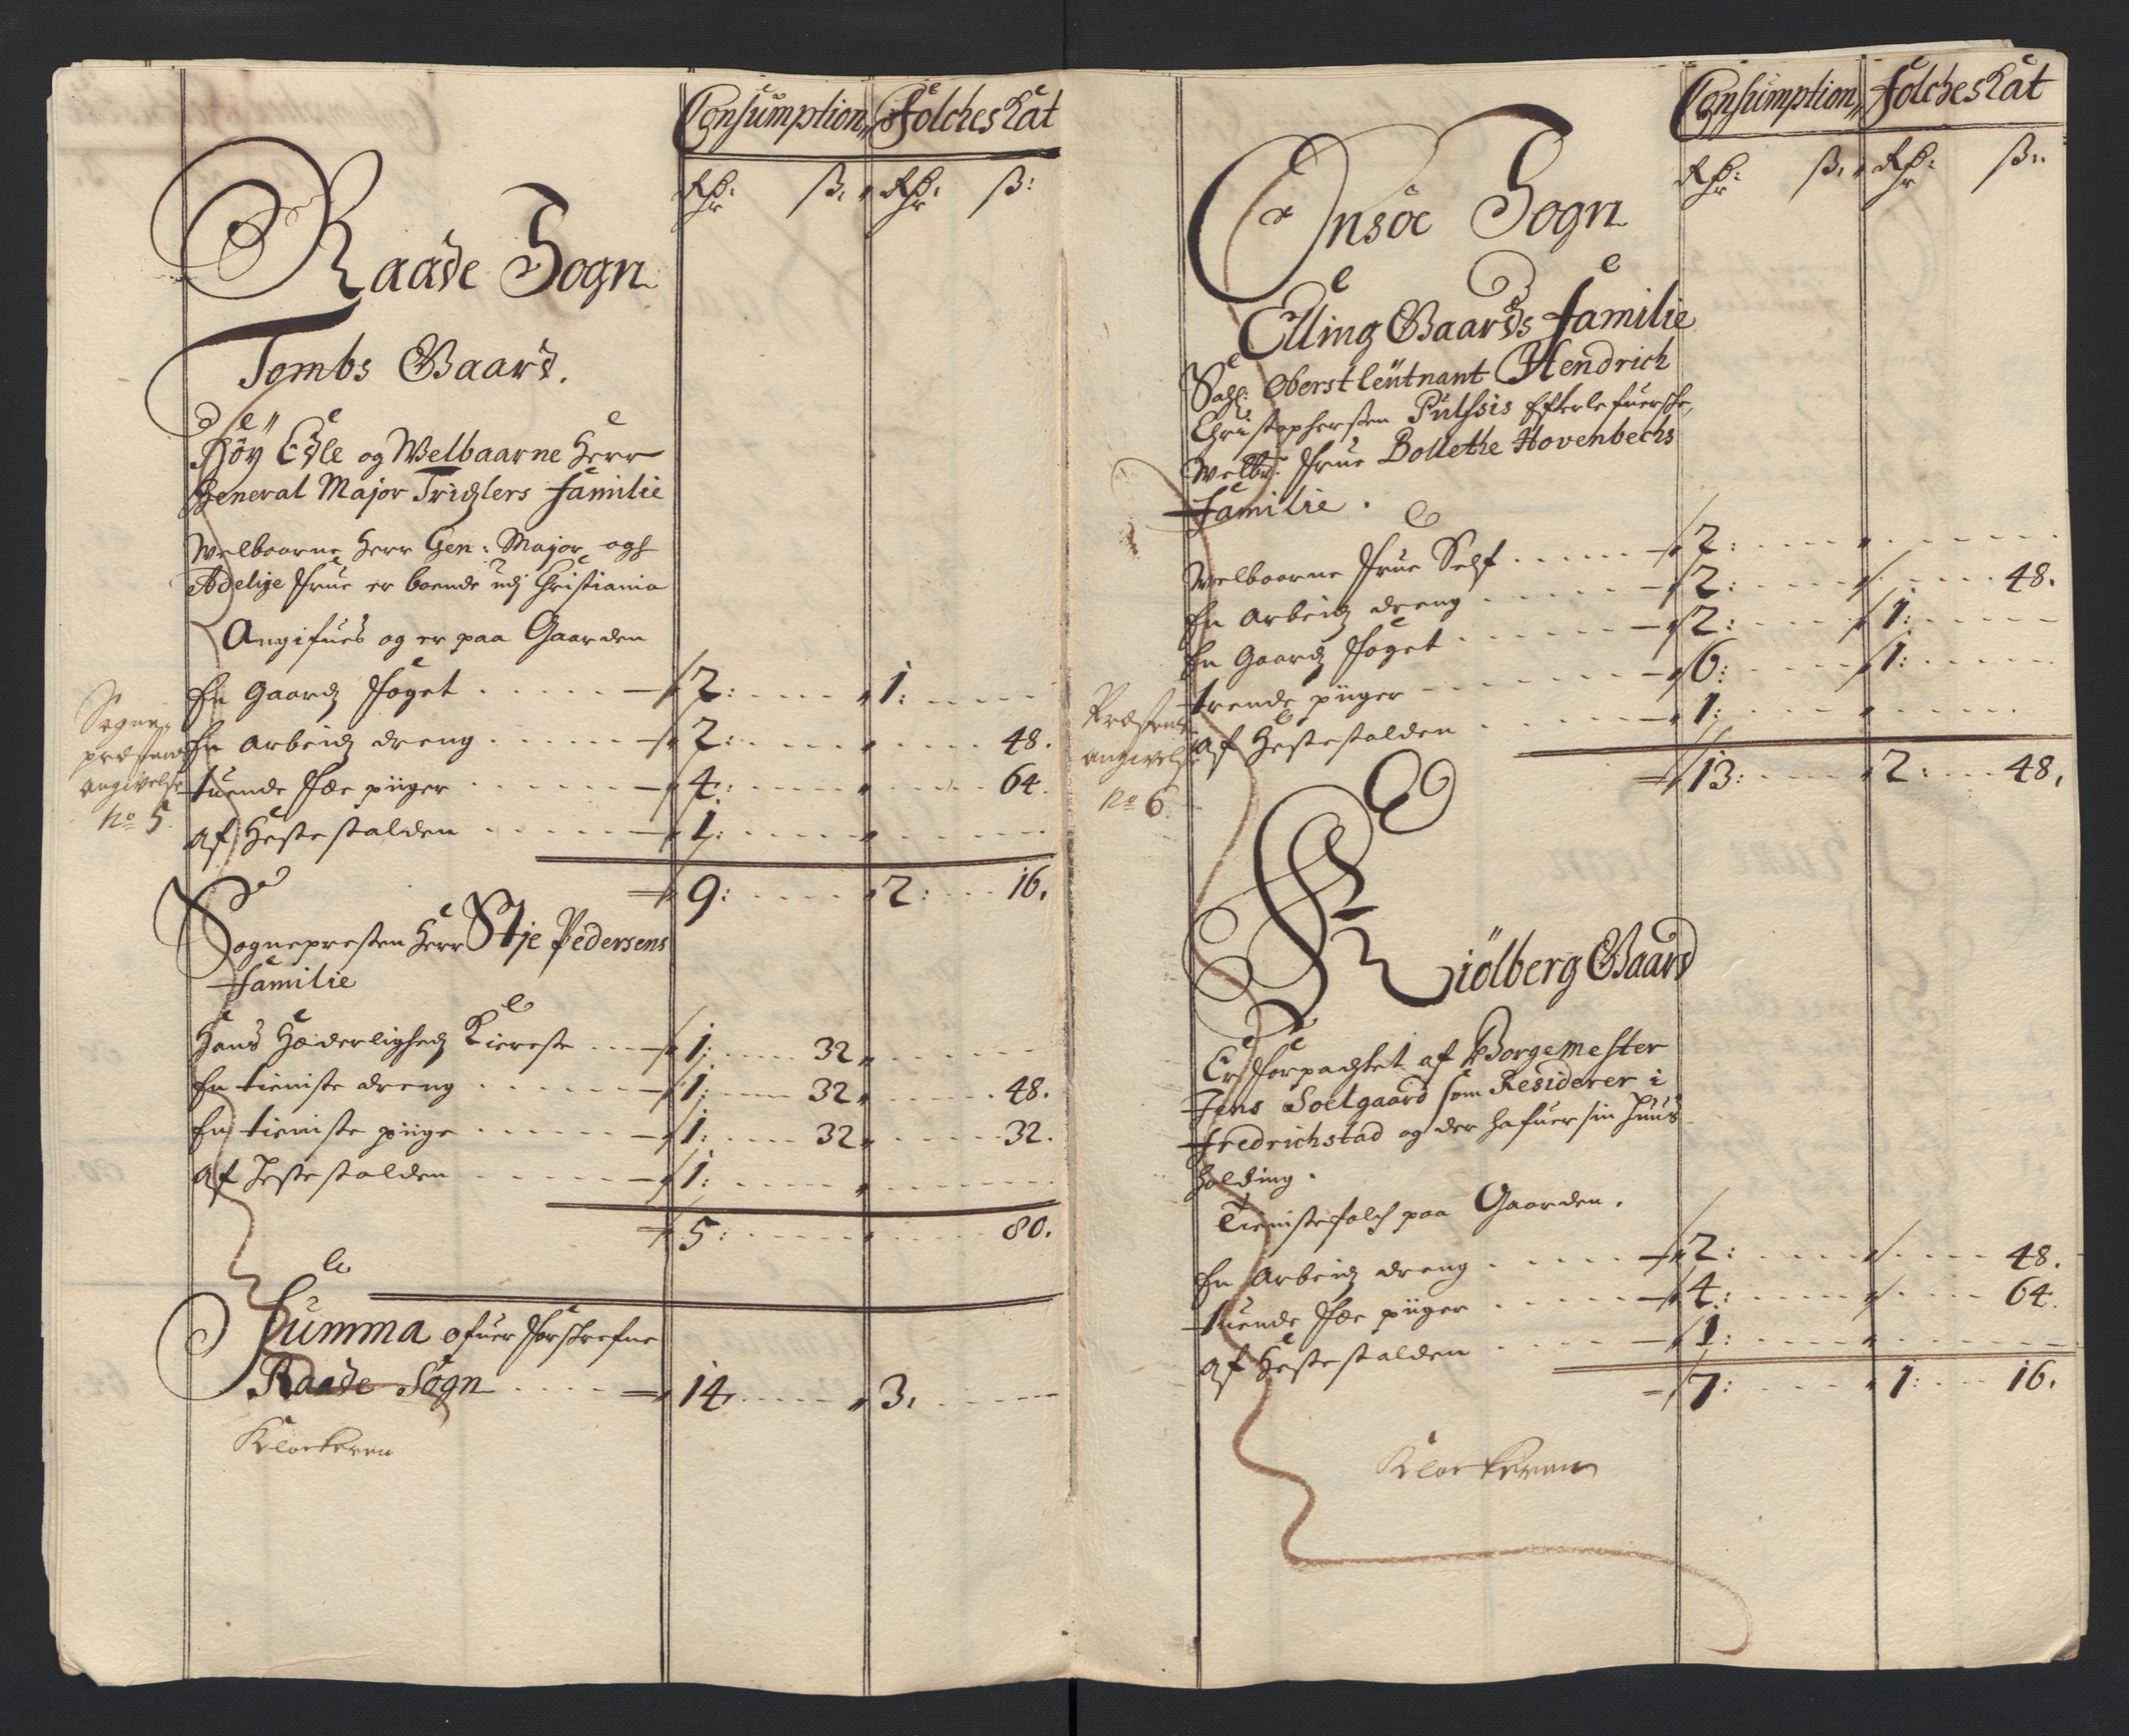 Consumption,, Folcheskat
Rdr: ß: Rdr: ß:
Raade Sogn
Tombs Gaard.
Höy Edle og Welbaarne Herr
General Major Tridzlers Familie
Welbaarne Herr Gen: Major ogh
Adelige Frue er boende udj Christiania
Angifues og er paa Gaarden
En Gaardz Foget . . . . . 2: . . . . 1: . . . .
En Arbeidz dreng . . . . . 2: . . . . . . . . 48.
tuende Fæe piiger . . . . . 4: . . . . . . . . 64.
Af Hestestalden . . . . . 1: . . . . . . . .
9: . . . . 2: . . . 16.
Sogne
præstens
angivelse
No 5.
Sognepresten Herr Stje Pedersens
Familie
Hans Hæderlighedz Kiereste . . . 1: . . . . 32 . . . . .
En tieniste dreng . . . . . 1: . . . . 32 . . . . . 48.
En tieniste piige . . . . . 1: . . . . 32 . . . . . 32.
Af Hestestalden . . . . . 1: . . . . . . . .
5: . . . . . . . . 80.
Summa ofuer Forschrefne
Raade Sogn . . . . 14. . . . . 3. . . . .
Klockeren
Consumption,, Folcheskat
Rdr: ß: Rdr: ß:
Onsöe Sogn
Elling Gaards Familie
Sahl: Oberstleutnant Hendrich
Christophersen Pulssis Efterlefuerske,
Welbr: Frue Bollethe Hovenbechs
Familie .
Welbaarne Frue Self . . . . . 2: . . . . . . . .
En Arbeidz dreng . . . . . 2: . . . . . . . . 48.
En Gaardz Foget . . . . . 2: . . . . 1: . . . .
trende piiger . . . . . 6: . . . . 1: . . . .
Af Hestestalden . . . . . 1: . . . . . . . .
13: . . . . 2: . . . 48.
Præstens
angivelse
No 6.
Kiölberg Gaard
Er Forpachtet af Borgemester
Jens Soelgaard som Residerer i
Fredrichstad og der hafuer sin Huus
holding .
Tienistefolch paa Gaarden.
En Arbeidz dreng . . . . . 2: . . . . . . . . 48.
tuende Fæe piiger . . . . . 4: . . . . . . . . 64.
Af Hestestalden . . . . . 1: . . . . . . . .
7: . . . . 1: . . . 16.
Klockeren